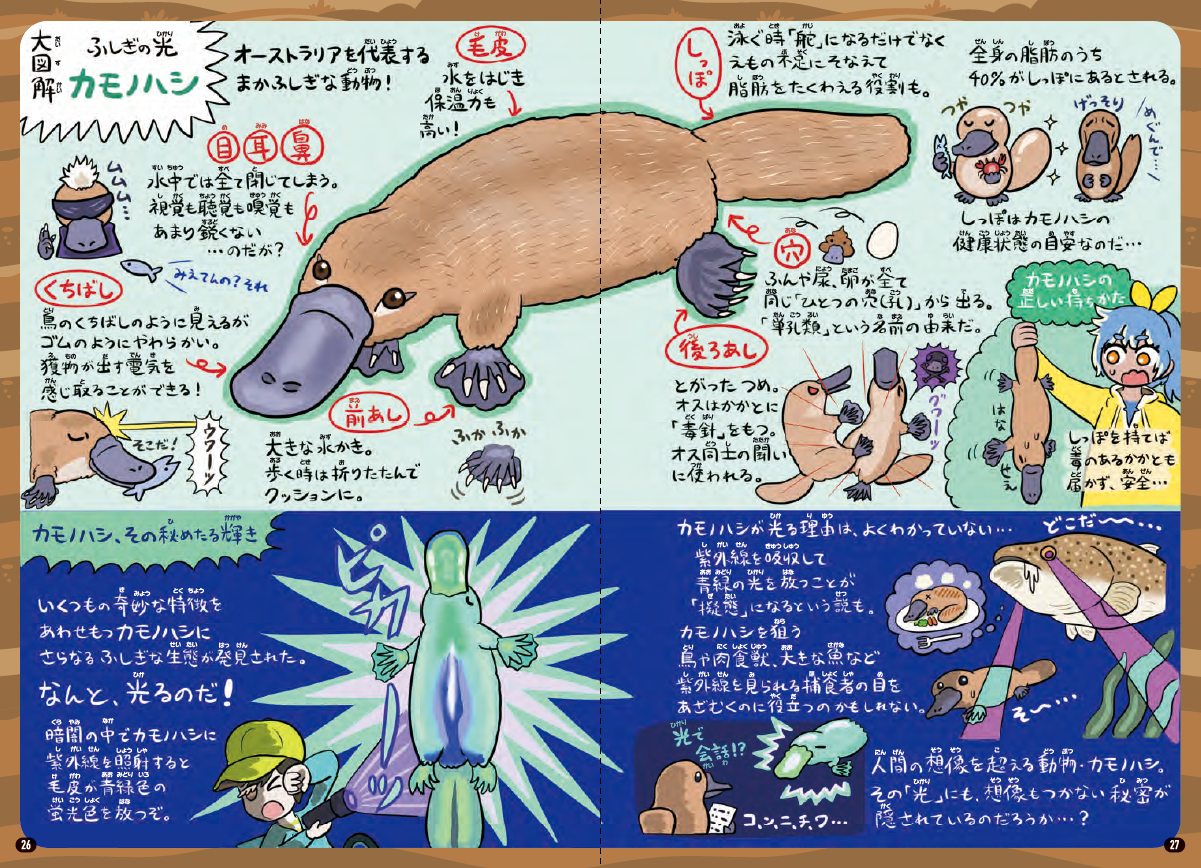 大図解
ふしぎの光
カモノハシ
オーストラリアを代表する
まかふしぎな動物！
毛皮
水をはじき
保温力も
高い！
目 耳 鼻
水中では全て閉じてしまう。
視覚も聴覚も嗅覚も
あまり鋭くない
…のだが？
ムムム…
みえてんの？それ
くちばし
鳥のくちばしのように見えるが
ゴムのようにやわらかい。
獲物が出す電気を
感じ取ることができる！
そこだ！
ウワーッ
前あし
大きな水かき。
歩く時は折りたたんで
クッションに。
ふか ふか
しっぽ
泳ぐ時「舵」になるだけでなく
えもの不足にそなえて
脂肪をたくわえる役割も。
全身の脂肪のうち
40%がしっぽにあるとされる。
つや つや
げっそり
めぐんで…
しっぽはカモノハシの
健康状態の目安なのだ…
穴
ふんや尿、卵が全て
同じ「ひとつの穴（孔）」から出る。
「単孔類」という名前の由来だ。
後ろあし
とがったつめ。
オスはかかとに
「毒針」をもつ。
オス同士の闘い
に使われる。
グワーッ
カモノハシの
正しい持ちかた
はな
せぇ
しっぽを持てば
毒のあるかかとも
届かず、安全…
カモノハシ、その秘めたる輝き
いくつもの奇妙な特徴を
あわせもつカモノハシに
さらなるふしぎな生態が発見された。
なんと、光るのだ！
暗闇の中でカモノハシに
紫外線を照射すると
毛皮が青緑色の
蛍光色を放つぞ。
ピカーッ
カモノハシが光る理由は、よくわかっていない…
紫外線を吸収して
青緑の光を放つことが
「擬態」になるという説も。
カモノハシを狙う
鳥や肉食獣、大きな魚など
紫外線を見られる捕食者の目を
あざむくのに役立つのかもしれない。
どこだ〜〜…
そ〜…
光で
会話!?
コ、ン、ニ、チ、ワ…
人間の想像を超える動物・カモノハシ。
その「光」にも、想像もつかない秘密が
隠されているのだろうか…？
26
27